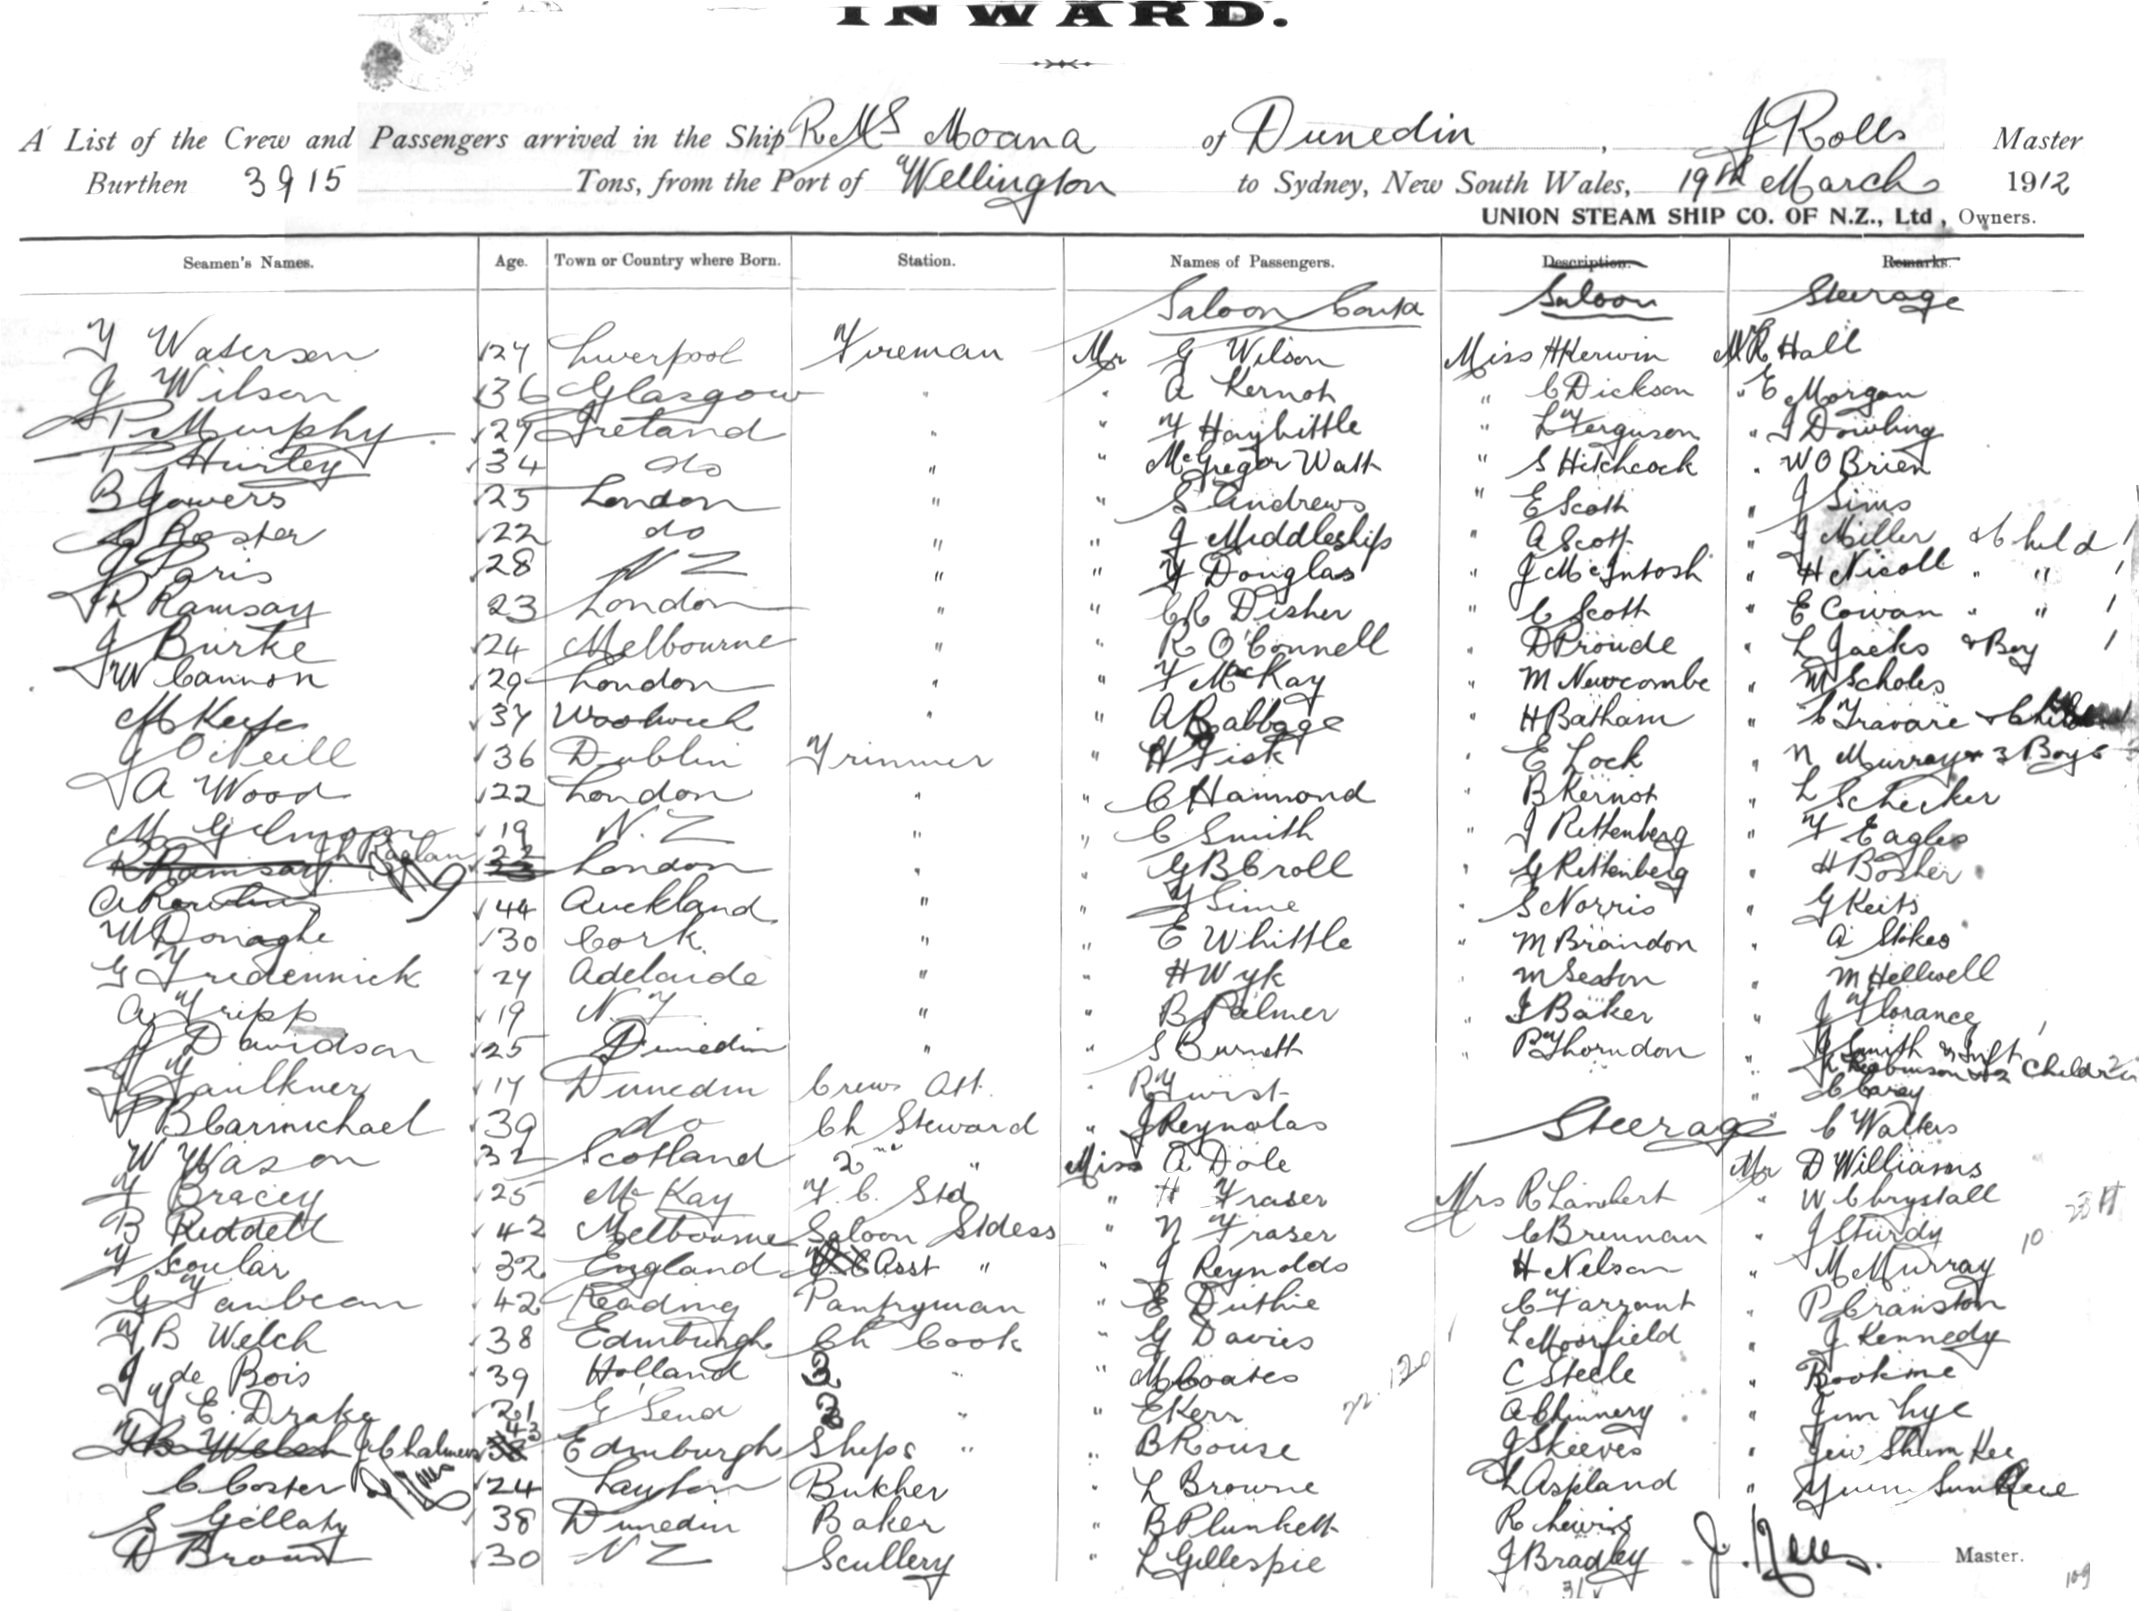 INWARD.
A List of the Crew and Passengers arrived in the Ship RMS Moana of Dunedin, J Rolls Master
Burthen 3915 Tons, from the Port of Wellington to Sydney, New South Wales, 19th March 1912
UNION STEAM SHIP CO. OF N.Z., Ltd, Owners.
Seamen's Names. Age. Town or Country where Born. Station. Names of Passengers. Description. Remarks.
Saloon Contd Saloon Steerage
Waterson 27 Liverpool Fireman Mr G Wilson Miss H Kerwin Mr R Hall
J Wilson 36 Glasgow " A Kernot " C Dickson " E Morgan
P Murphy 27 Ireland " " F Haybittle " L Ferguson " J Dowling
P Hurley 34 do " " McGregor Watt " S Hitchcock " W O Brien
B Gowers 25 London " " S Andrews " E Scott " J Sims
Roster 22 do " " J Middleship A Scott " J Miller & Child 1
J Paris 28 N Z " " F Douglas " J McIntosh " H Nicoll " " 1
R Ramsay 23 London " " C R Disher " C Scott " E Cowan " " 1
J Burke 24 Melbourne " " R O'Connell " D Proude " L Jacks & Boy 1
W Cannon 29 London " " F MacKay " M Newcombe " M Scholes
M Keefe 37 Woolwich " " A Babbage " H Batham " C Travare & Child
J O'Neill 36 Dublin Trimmer " H Fisk " E Lock " N Murray & 3 Boys
A Wood 22 London " " C Hammond " B Kernot " L Schecker
M Gilmour 19 N.Z " " C Smith " J Rettenberg " F Eagles
R Ramsay J h Raglan 22 London " G B Croll " G Rettenberg H Bosher
A 44 Auckland " " Sime " S Norris " G Keits
W Donaghe 30 Cork " " E Whittle " M Brandon " A Stokes
G Tredennick 27 Adelaide " " H Wyk M Sexton M Hellwell
A Tripp 19 N.Z " " B Palmer " I Baker " J Florance
J Davidson 25 Dunedin " " S Burnett " P Thorndon " J Smith & Inft 1
Robinson & 2 Children
Faulkner 17 Dunedin Crews Att. " R Twist " C Carey
B Carmichael 39 do Ch Steward " J Reynolds Steerage " C Walters
W Wason 32 Scotland 2nd " Miss A Dole Mr D Williams
F Bracey 25 McKay F.C. Std " H Fraser Mrs R Lambert " W Chrystall
B Riddell 42 Melbourne Saloon Stdess " N Fraser C Brennan " J Sturdy
F Scoular 32 England Asst " " J Reynolds H Nelson " M Murray
G Fanbean 42 Reading Pantryman " E Duthie C Farrant " P Cranston
B Welch 38 Edinburgh Ch Cook " G Davies L Moorfield " J Kennedy
J de Bois 39 Holland 2 " " M Coates C Steele "
E. Drake 21 G'Send 3 " " E Kerr A Chinnery " Jim Lye
B Welch J Chalmers 43 Edinburgh Ships " " B Rouse J Skeeves " Jew Shum Kee
C Coster 24 Layton Butcher " L Browne L Aspland "
S Gillaty 38 Dunedin Baker " B Plunkett R Lewis
D Brown 30 N Z Scullery " L Gillespie J Bradley Master.
31
109